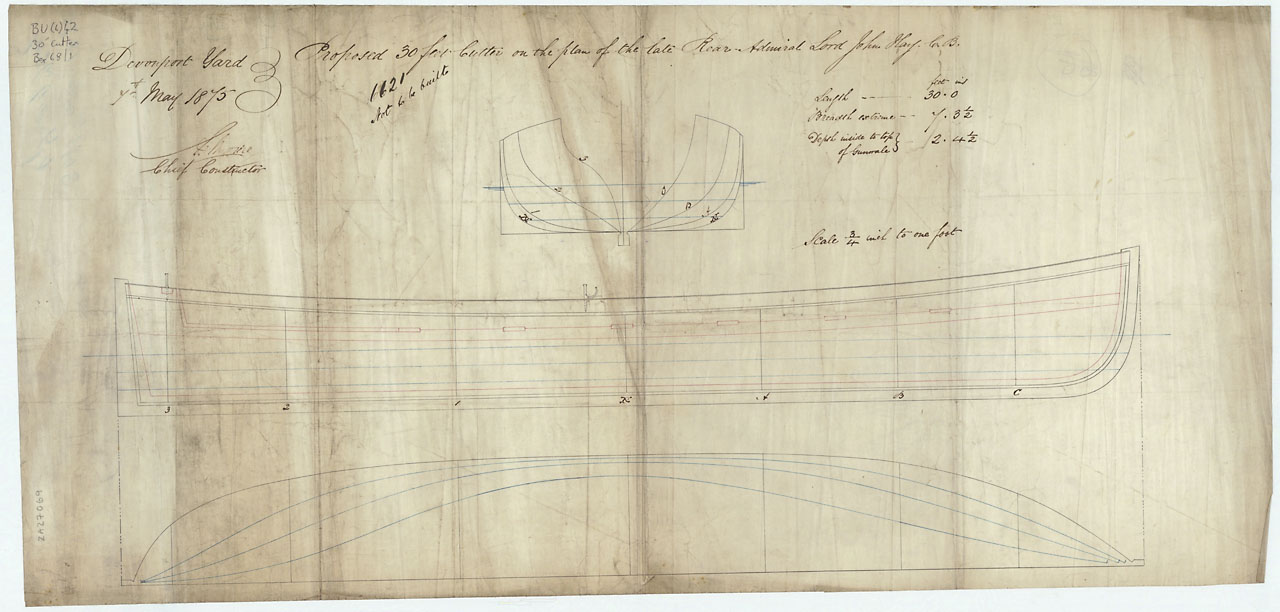 BU(6)42
30' Cutter
Box 68/1
Devonport Yard
7th May 1875
Chief Constructor
Proposed 30 feet Cutter on the plan of the late Rear-Admiral Lord John Hay. C.B.
1621
Not to be built
feet ins
Length ---- 30 . 0
Breadth extreme -- 7 . 3 1/2
Depth inside to top of Gunwale } 2 . 4 1/2
Scale 3/4 inch to one foot
3
2
1
B
A
3 2 1 A B C